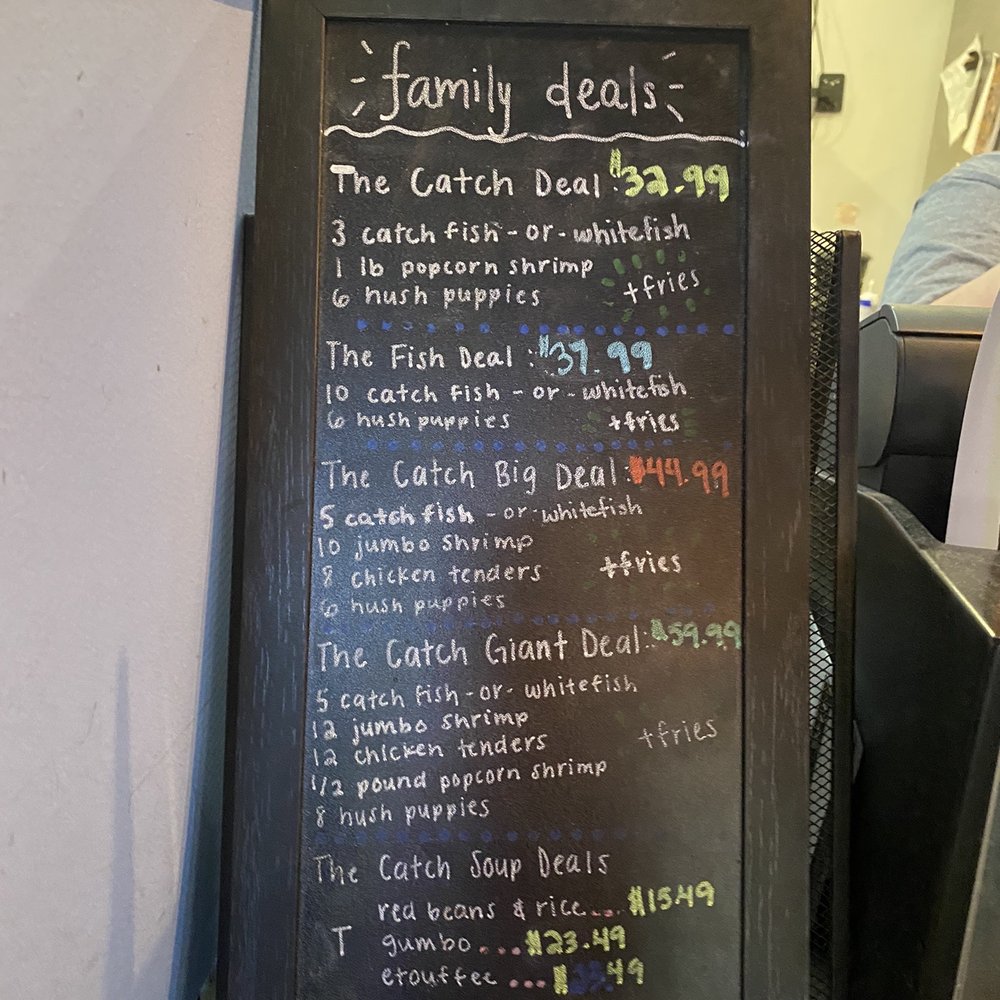 family deals
The Catch Deal: $32.99
3 catch fish - or - whitefish
1 lb popcorn shrimp
6 hush puppies
+fries
The Fish Deal: $37.99
10 catch fish - or - whitefish
6 hush puppies
+fries
The Catch Big Deal: $44.99
5 catch fish - or - whitefish
10 jumbo shrimp
8 chicken tenders
+fries
6 hush puppies
The Catch Giant Deal: $59.99
5 catch fish - or - whitefish
12 jumbo shrimp
+fries
12 chicken tenders
1/2 pound popcorn shrimp
8 hush puppies
The Catch Soup Deals
red beans & rice... $15.49
T gumbo... $23.49
etouffee ...